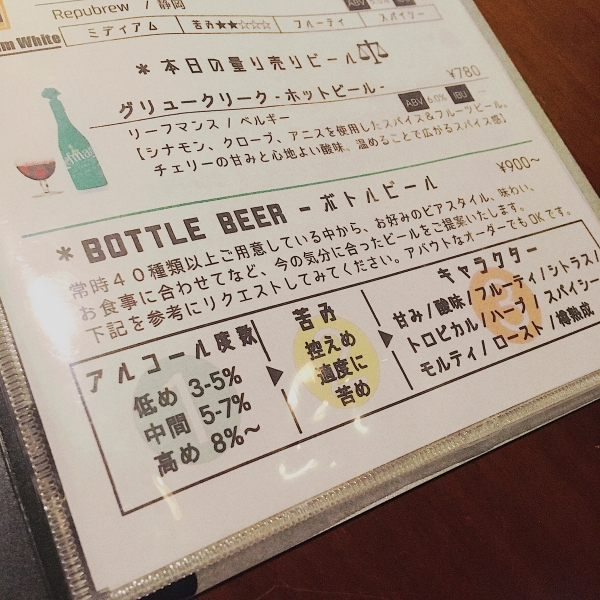 Repubrew / 静岡
m White
ミディアム 苦み★★☆☆☆ フルーティ スパイシー
* 本日の量り売りビール
グリュークリーク-ホットビール- ¥780
リーフマンス / ベルギー ABV 6.0% IBU -
【シナモン、クローブ、アニスを使用したスパイス&フルーツビール。
チェリーの甘みと心地よい酸味、温めることで広がるスパイス感】
* BOTTLE BEER - ボトルビール ¥900~
常時40種類以上ご用意している中から、お好みのビアスタイル、味わい、
お食事に合わせてなど、今の気分に合ったビールをご提案いたします。
下記を参考にリクエストしてみてください。アバウトなオーダーでもOKです。
アルコール度数
1
低め 3-5%
中間 5-7%
高め 8%~
苦み
2
控えめ
適度に
苦め
キャラクター
3
甘み/酸味/フルーティ/シトラス/
トロピカル/ハーブ/スパイシー
モルティ/ロースト/樽熟成